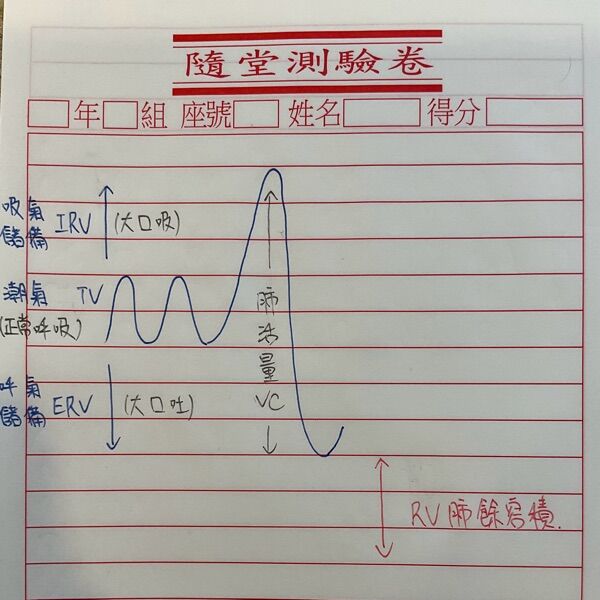 隨堂測驗卷
年 組 座號 姓名 得分
吸氣
儲備 IRV (大口吸)
潮氣 TV
(正常呼吸)
呼氣
儲備 ERV (大口吐)
肺活量VC
RV 肺餘容積.